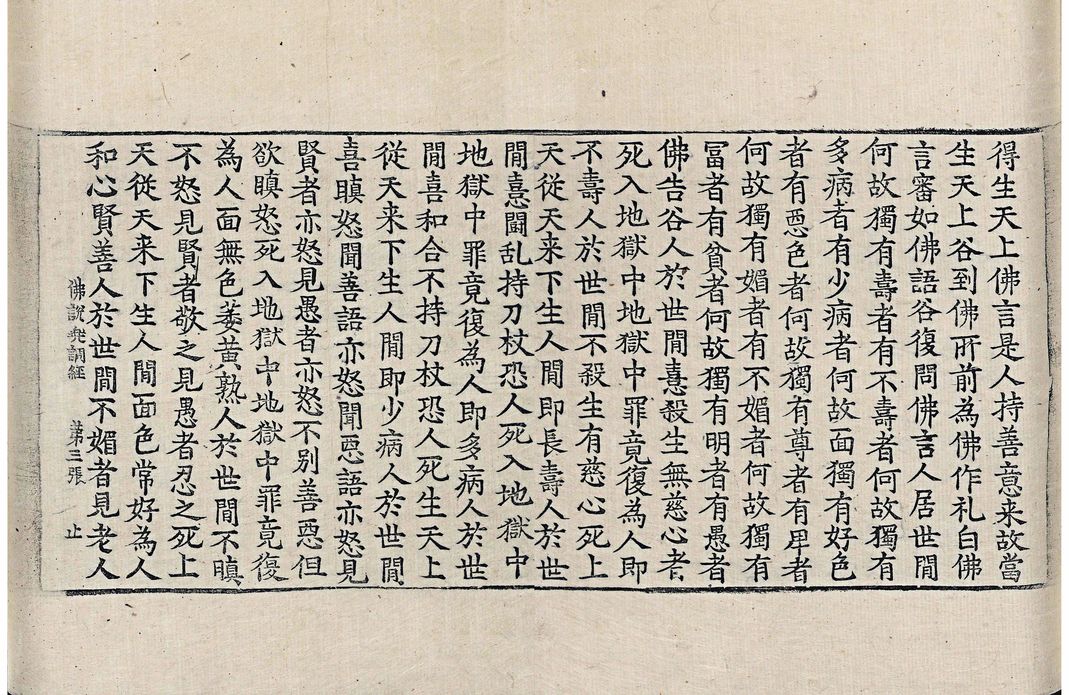 得生天上佛言是人持善意来故當
生天上谷到佛所前為佛作礼白佛
言審如佛語谷復問佛言人居世閒
何故獨有壽者有不壽者何故獨有
多病者有少病者何故面獨有好色
者有惡色者何故獨有尊者有卑者
何故獨有媚者有不媚者何故獨有
冨者有貧者何故獨有明者有愚者
佛告谷人於世閒憙殺生無慈心者
死入地獄中地獄中罪竟復為人即
不壽人於世閒不殺生有慈心死上
天從天来下生人閒即長壽人於世
閒憙鬪乱持刀杖恐人死入地獄中
地獄中罪竟復為人即多病人於世
閒喜和合不持刀杖恐人死生天上
從天来下生人閒即少病人於世閒
喜瞋怒聞善語亦怒聞惡語亦怒見
賢者亦怒見愚者亦怒不別善惡但
欲瞋怒死入地獄中地獄中罪竟復
為人面無色萎黃熟人於世閒不瞋
不怒見賢者敬之見愚者忍之死上
天從天来下生人閒面色常好為人
和心賢善人於世閒不媚者見老人
佛說兜調經 第三張 止